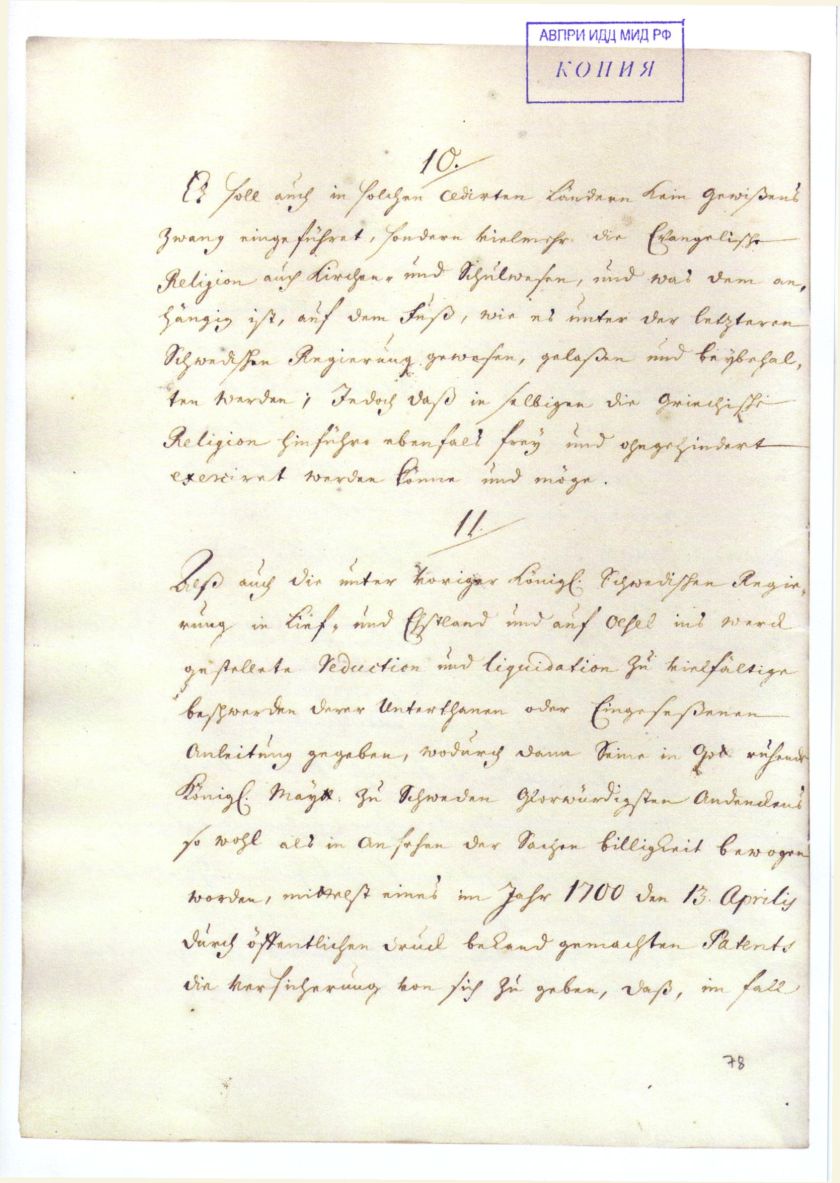 АВПРИ ИДД МИД РФ
КОПИЯ
10.
Es soll auch in solchen cedirten Ländern kein Gewißens
Zwang eingeführet, sondern vielmehr die Evangelische
Religion auch Kirchen- und Schulwesen, und was dem an-
hängig ist, auf dem Fuß, wie es unter der letzteren
Schwedischen Regierung gewesen, gelaßen und beybehal-
ten werden; Jedoch daß in selbigen die Griechische
Religion hinführo ebenfals frey und ohngehindert
exerciret werden könne und möge.
11.
auch die unter voriger Königl. Schwedischen Regie-
rung in Lief- und Ehstland und auf Oesel ins werck
gestellete Reduction und liquidation zu vielfältige
beschwerden derer Unterthanen oder Eingeseßenen
Anleitung gegeben, wodurch dann Seine in Gott ruhende
Königl. Maytt. zu Schweden Glorwürdigsten Andenckens
so wohl als in Ansehen der Sachen billigkeit bewogen
worden, mittelst eines im Jahr 1700 den 13. Aprilis
durch öffentlichen druck bekand gemachten Patents
die versicherung von sich zu geben, daß, im fall
78